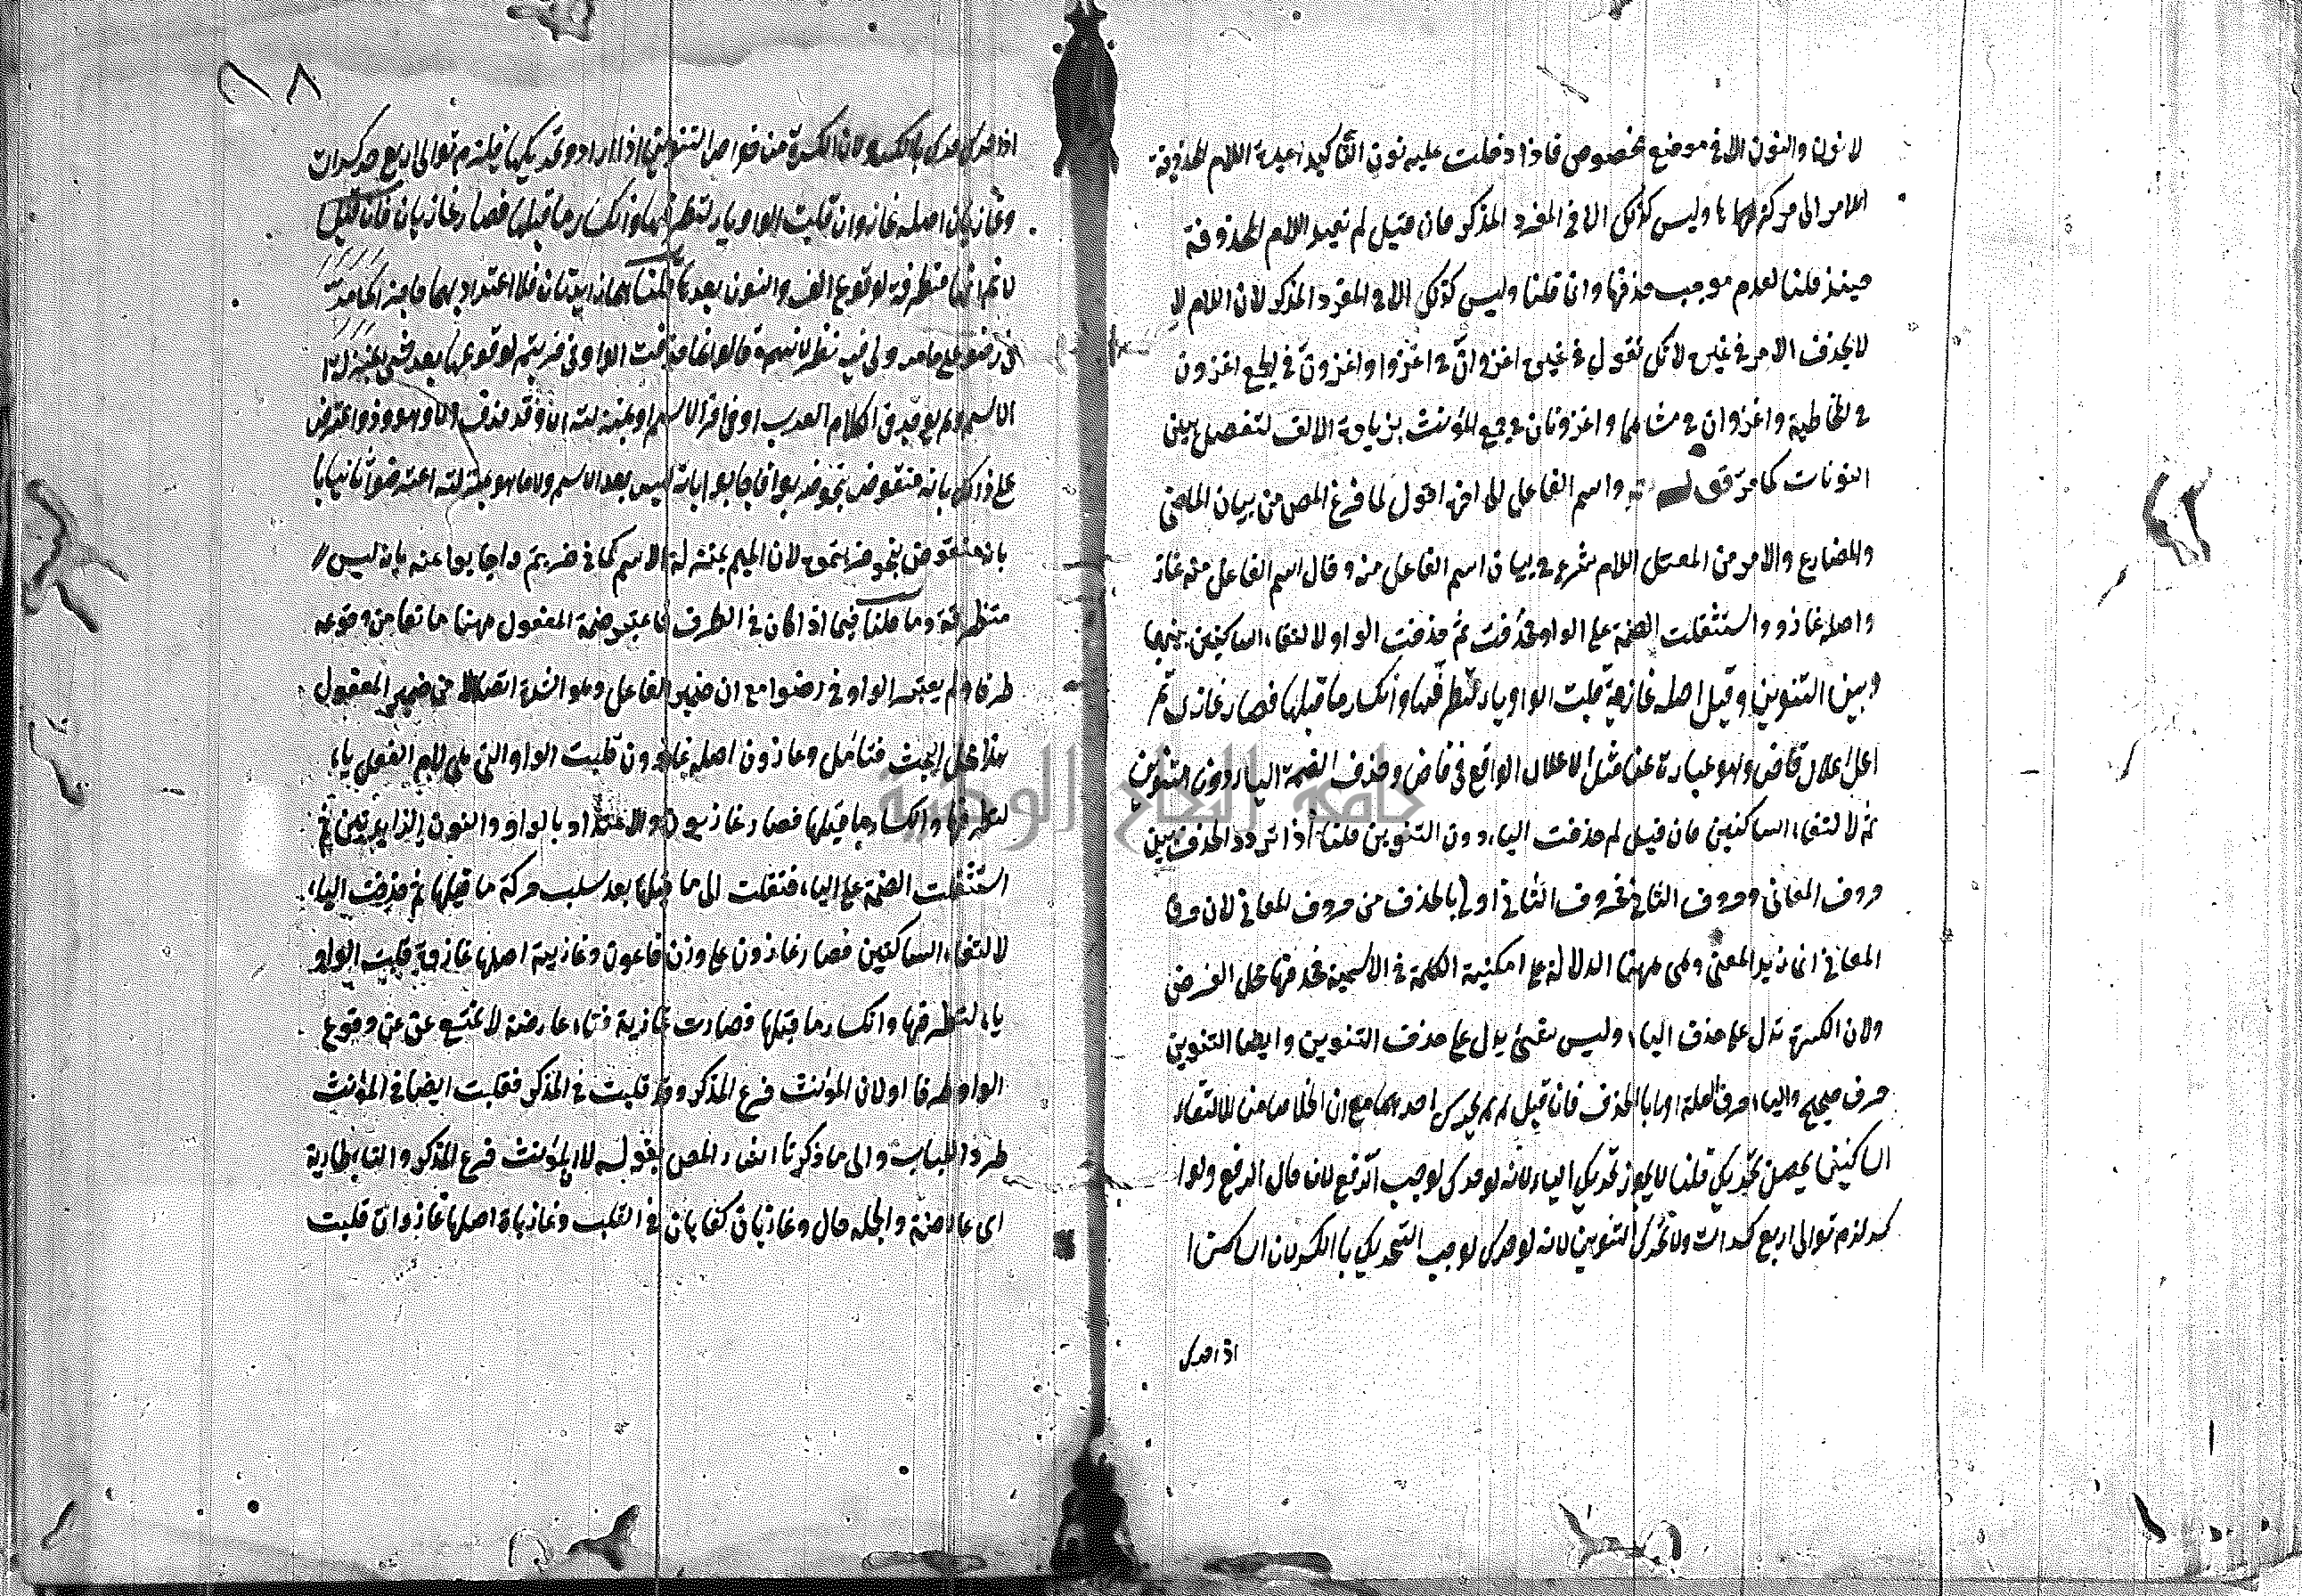 لا نون والنون الا في موضع مخصوص فاذا دخلت عليه نون التأكيد اعيدت اللام المحذوفة
الامر الى حركتها وليس كذلك الا في المفرد المذكر فان قيل لم تعيد اللام المحذوفة
حينئذ قلنا لعدم موجب حذفها وانا قلنا وليس كذلك الا في المفرد المذكر لان اللام لا
لا يحذف الامر في غيره لانك تقول في غيره اغزوا في اغزوا واغزون في الجمع اغزون
في المخاطبة واغزوان في مثناهما واغزونان في جمع المؤنث بزيادة الالف لتفصل بين
النونات كما مر قوله واسم الفاعل الى اخره اقول لما فرغ المص من بيان الماضي
والمضارع والامر من المعتل اللام شرع في بيان اسم الفاعل منه وقال اسم الفاعل منه غاز
واصله غازو واستثقلت الضمة على الواو فحذفت ثم حذفت الواو لالتقاء الساكنين بينها
وبين التنوين وقيل اصله غازو قلبت الواو ياء لتطرفها وانكسار ما قبلها فصار غازى ثم
اعل اعلال قاض وهو عبارة عن مثل الاعلال الواقع في قاض وحذف الضمة الياء دون التنوين
ثم لالتقاء الساكنين فان قيل لم حذفت الياء دون التنوين قلنا اذا تردد الحذف بين
حروف المعاني وحروف الثاني فحروف الثاني اولى بالحذف من حروف المعاني لان حروف
المعاني انما تزيد المعنى وهي ههنا الدلالة على امكنية الكلمة في الاسمية فحذفها مخل الغرض
ولان الكسرة تدل على حذف الياء وليس شئ يدل على حذف التنوين وايضا التنوين
حرف صحيح والياء حرف العلة اولى بالحذف فان قيل لم لم يحرك احدهما مع ان الخلاص من الالتقاء
الساكنين يحصل بتحريك قلنا لا يجوز تحريك الياء لانه لو حرك لوجب الرفع لان حال الرفع ولو
كسر لزم توالى اربع كسرات ولا تحرك التنوين لانه لو حرك لوجب التحريك بالكسر لان الساكن
اذا حرك
اذا حرك حرك بالكسر ولان الكسرة من خواص التنوين اذا ارادو تحريكها فيلزم توالى اربع كسرات
وغازيان اصله غازوان قلبت الواو ياء لتطرفها وانكسار ما قبلها فصار غازيان فان قيل
لا نم انها متطرفة لوقوع الف والنون بعدها قلنا انهما زايدتان فلا اعتداد بهما
في رضو على مامر وفيه نظر لانهم قالوا انما حذفت الواو في ضربتم لوقوعها بعد
الاسم ولم يوجد في الكلام العرب اوفى اخر الاسم او بمنزلته الا وقد حذف الا وهو ذو واعترض
على ذلك بانه منقوض بنحو ضربوا فاجابوا بانه ليس بعد الاسم ولا ما هو بمنزلته اعترضوا ثانيا
بانه منقوض بنحو ضربتموه لان الميم بمنزلة الاسم كما في ضربتم واجابوا عنه بانه ليس
متطرفة وما قلنا فيما اذا كان في الطرف فاعتبر ضمة المفعول ههنا مانعا من وقوعه
طرفا ولم يعتبر الواو في رضوا مع ان ضمير الفاعل وهو اشد اتصالا من ضمير المفعول
هذا محل البحث فتأمل وغازون اصله غازوون قلبت الواو التي هي لام الفعل ياء
لتطرفها وانكسار ما قبلها فصار غازيون ولا اعتداد بالواو والنون الزايدتين ثم
استثقلت الضمة على الياء فنقلت الى ما قبلها بعد سلب حركة ما قبلها ثم حذفت الياء
لالتقاء الساكنين فصار غازون على وزن فاعون وغازية اصلها غازوة قلبت الواو
ياء لتطرفها وانكسار ما قبلها فصارت غازية فتاء عارضة لا تمنع عن وقوع
الواو طرفا او لان المؤنث فرع المذكر وقد قلبت في المذكر فقلبت ايضا في المؤنث
طردا للباب والى ما ذكرنا اشار المص بقوله لان المؤنث فرع المذكر والتاء طارية
اى عارضة والجملة حال وغازيتان كغازيان في القلب وغازيات اصلها غازوات قلبت
جامعة النجاح الوطنية